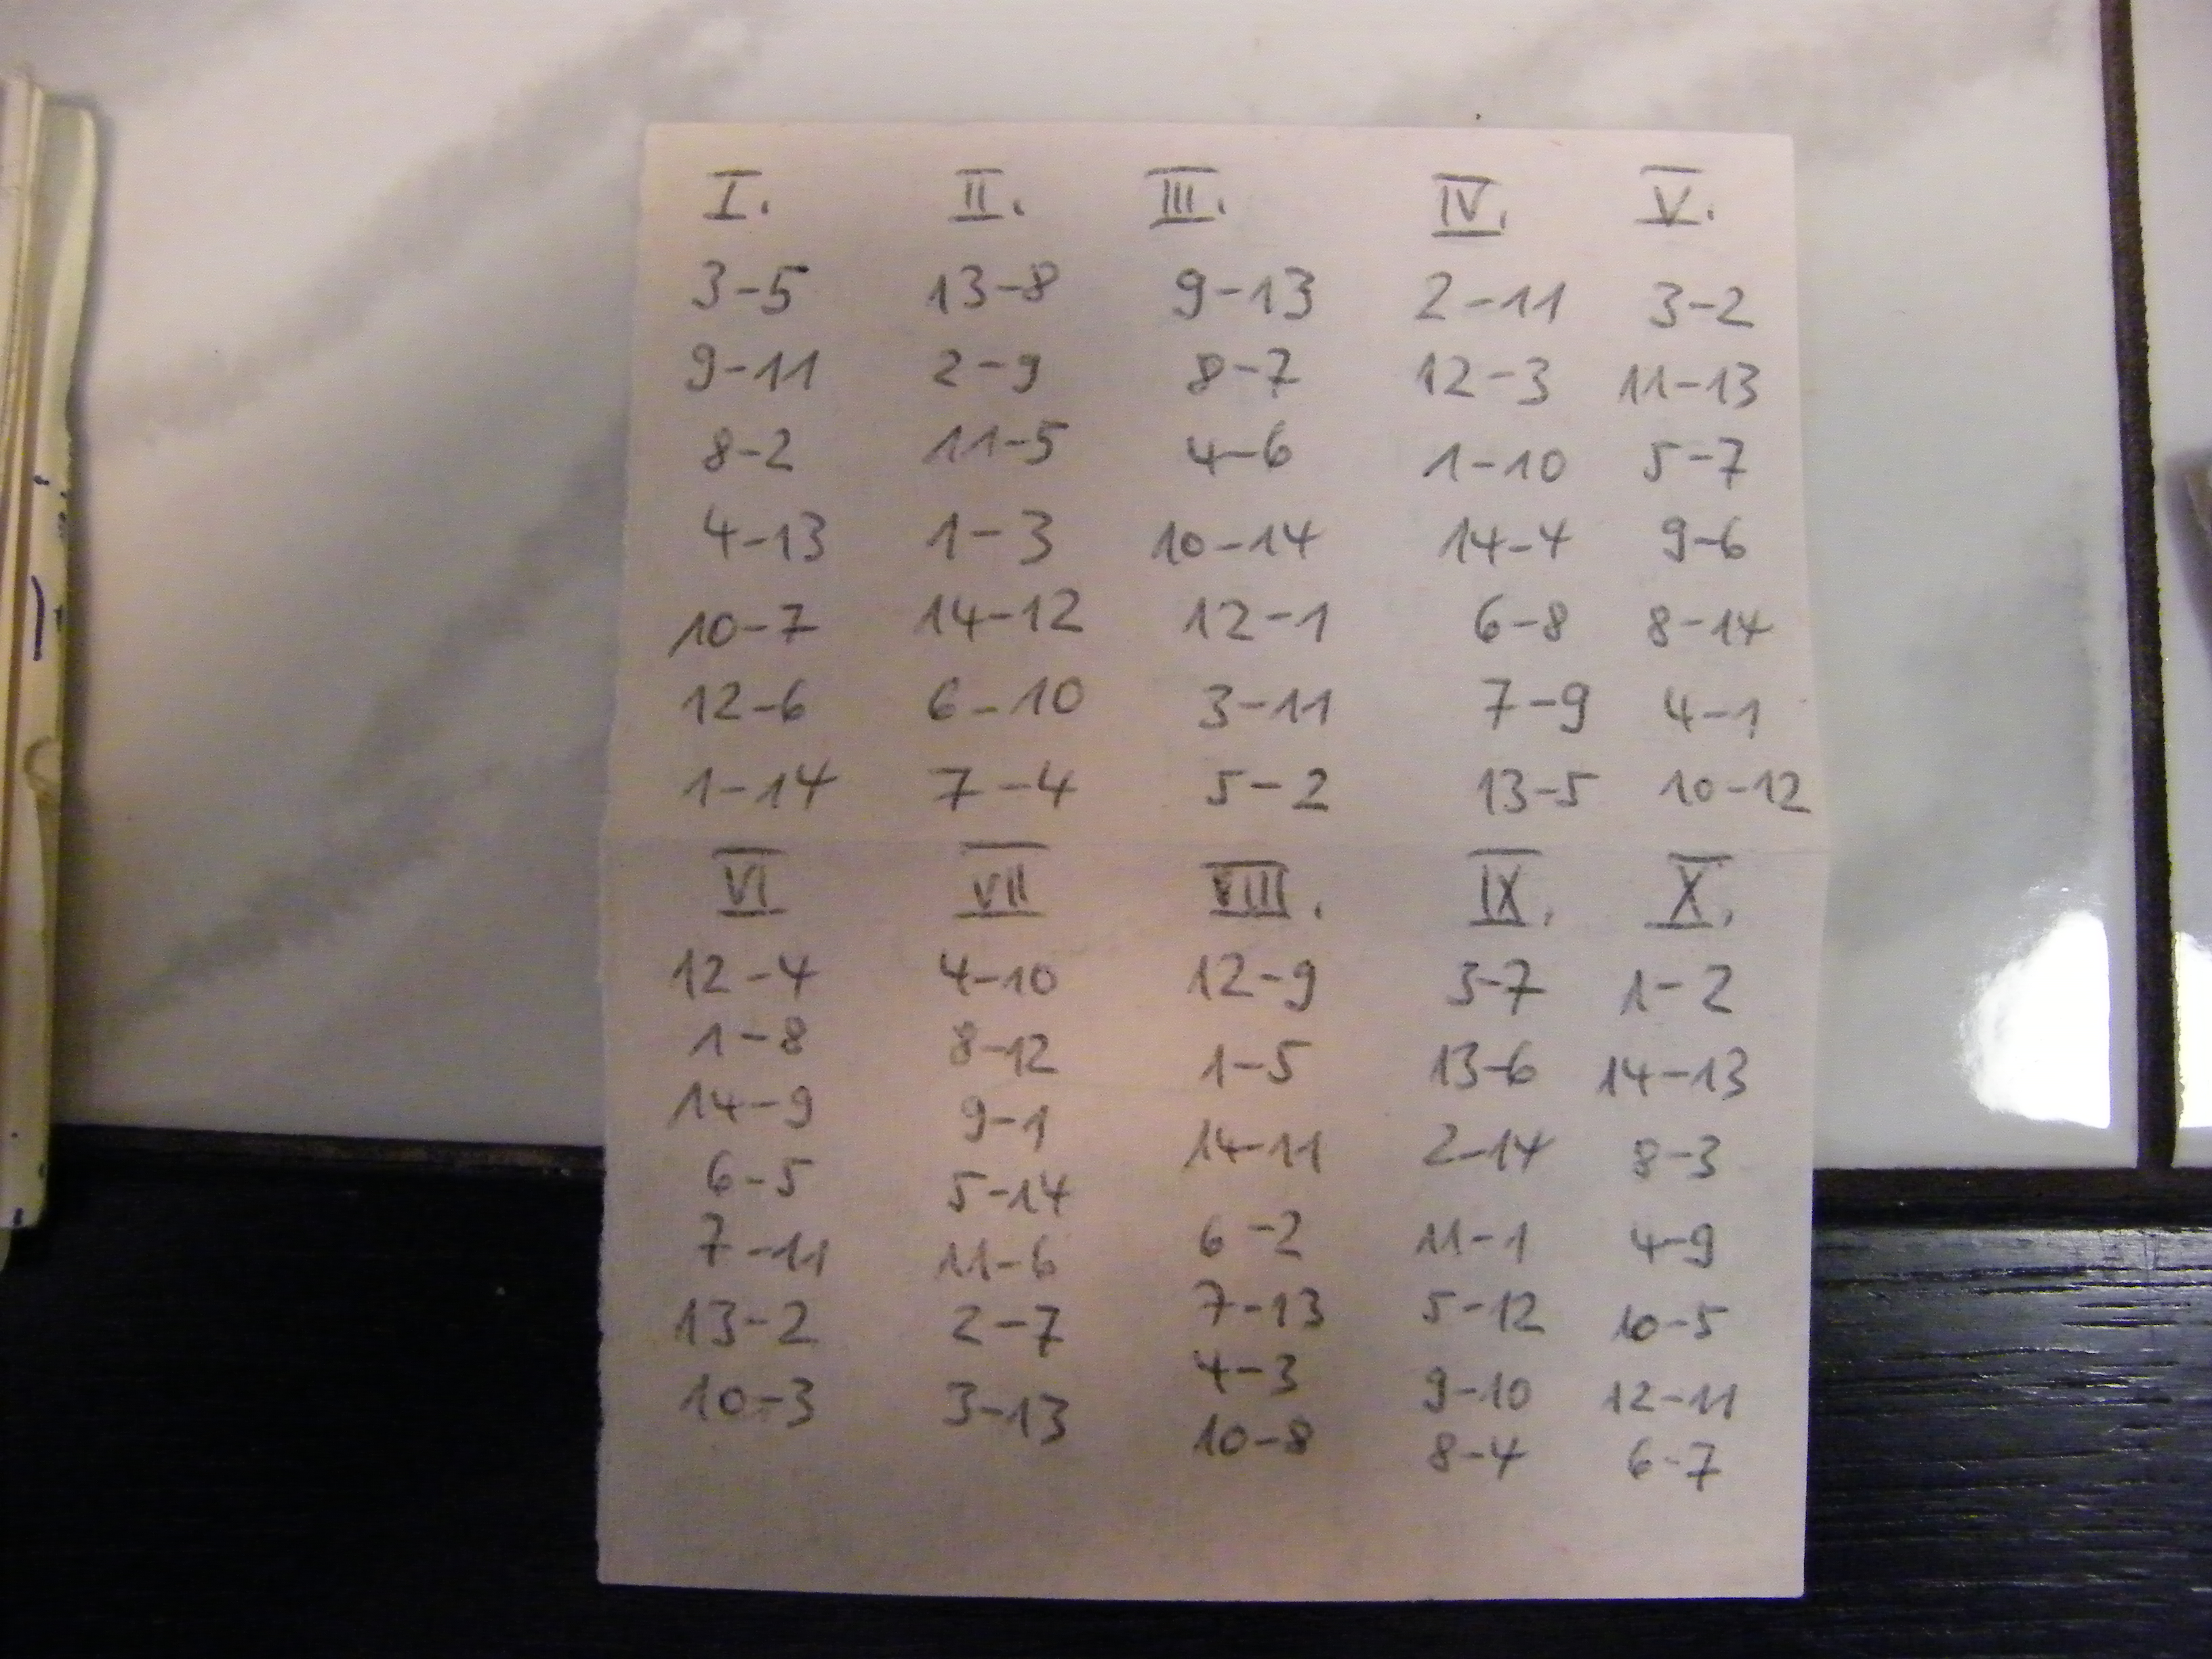 I. II. III. IV. V.
3-5 13-8 9-13 2-11 3-2
9-11 2-9 8-7 12-3 11-13
8-2 11-5 4-6 1-10 5-7
4-13 1-3 10-14 14-4 9-6
10-7 14-12 12-1 6-8 8-14
12-6 6-10 3-11 7-9 4-1
1-14 7-4 5-2 13-5 10-12
VI VII VIII. IX. X.
12-4 4-10 12-9 3-7 1-2
1-8 8-12 1-5 13-6 14-13
14-9 9-1 14-11 2-14 8-3
6-5 5-14 6-2 11-1 4-9
7-11 11-6 7-13 5-12 10-5
13-2 2-7 4-3 9-10 12-11
10-3 3-13 10-8 8-4 6-7